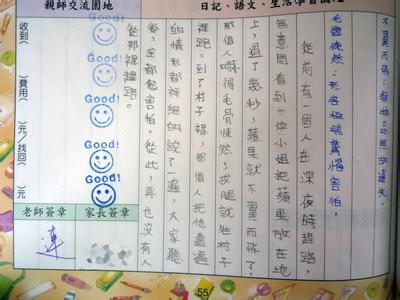 日記、語文、生活學習園地
不翼而飛：物品無故遺失。
毛骨悚然：形容極端驚惱害怕。
從前有一個人在深夜時趕路。
無意間看到一位小姐把蘋果放在地
上，過了幾秒，蘋果就不翼而飛了。
那個人嚇得毛骨悚然，拔腿就往村子
裡跑。到了村子裡，那個人把他遭遇
的情形都詳細的說了一遍，大家聽
後，全都害怕。從此，再也沒有人
從那裡趕路。
親師交流園地
Good!
Good!
Good!
Good!
收到( )費用( )元/找回( )元
老師簽章
家長簽章
連
55